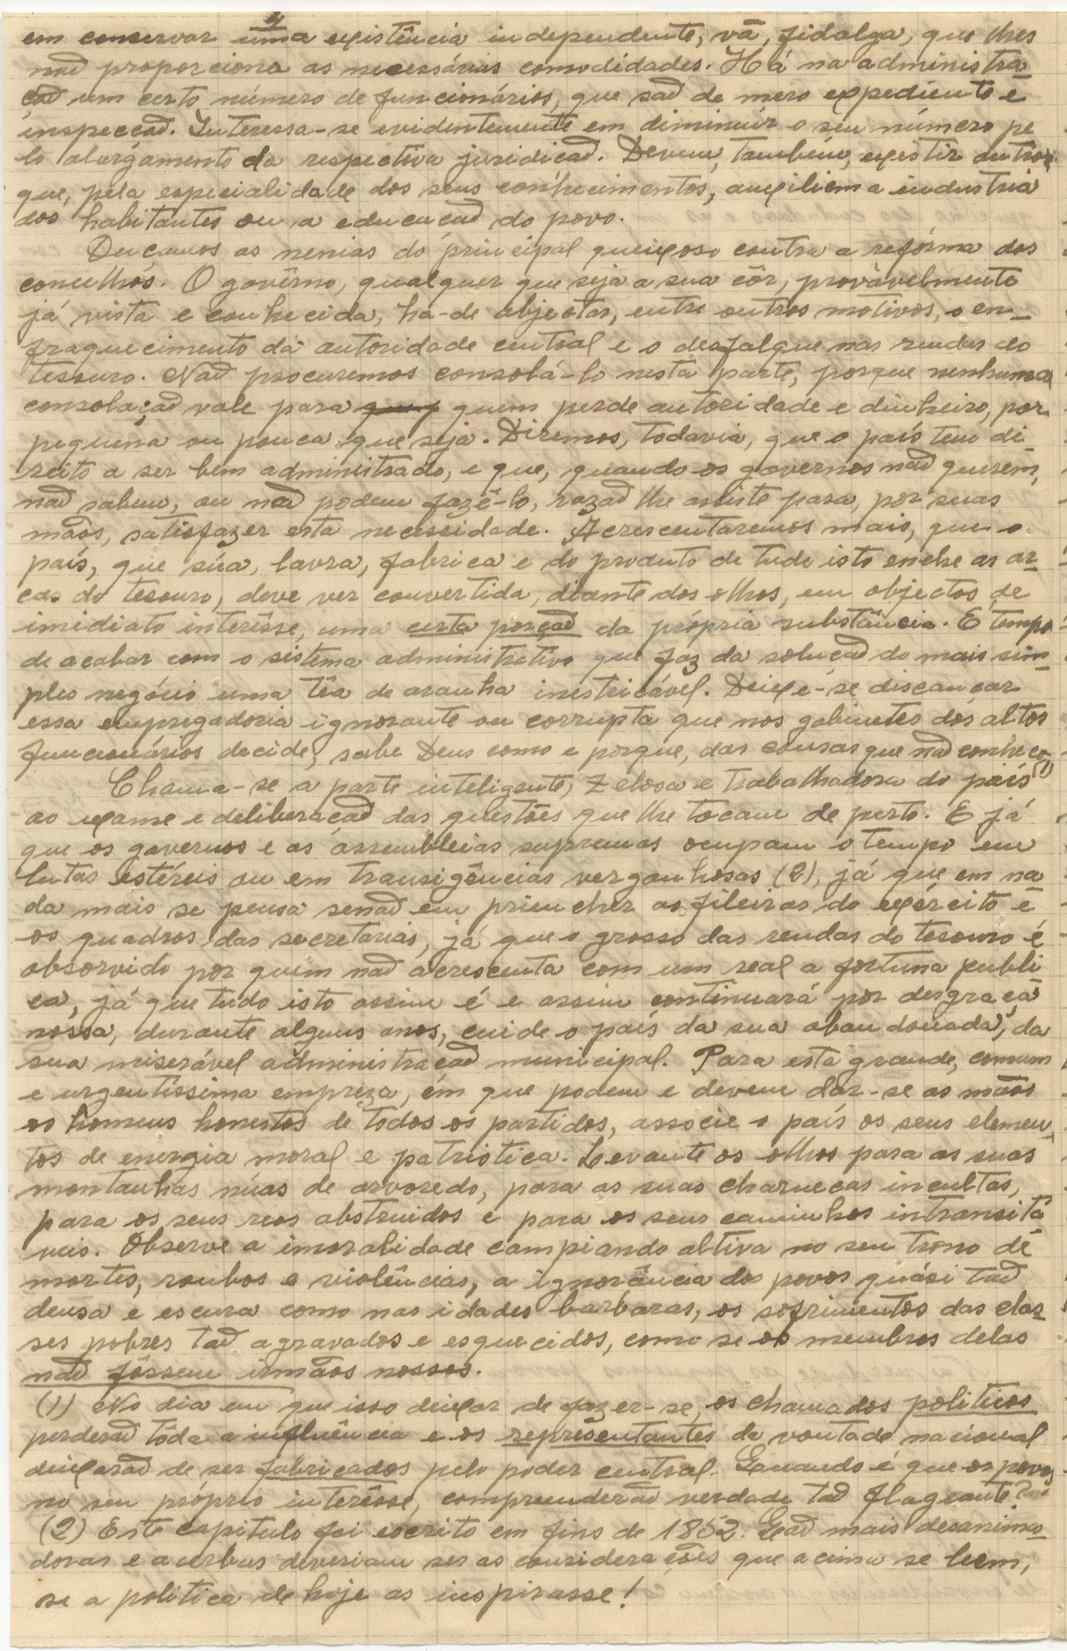 em conservar uma existência independente, vã, fidalga, que lhes
não proporciona as necessárias comodidades. Há na administra
ção um certo número de funcionários, que são de mero expediente e
inspecção. Interessa-se evidentemente em diminuir o seu número pe
lo alargamento da respectiva juridicão. Devem, também, existir outros
que, pela especialidade dos seus conhecimentos, auxiliem a industria
dos habitantes ou a educação do povo.
Deixamos as nenias do principal queixoso contra a refórma dos
concelhos. O govêrno, qualquer que seja a sua côr, provàvelmente
já vista e conhecida, ha-de objectar, entre outros motivos, o en-
fraquecimento da autoridade central e o desfalque nas rendas do
tesouro. Não procuremos consolá-lo nesta parte, porque nenhuma
consolação vale para quem perde autoridade e dinheiro, por
pequena ou pouca que seja. Diremos, todavia, que o país tem di
reito a ser bem administrado, e que, quando os governos não querem,
não sabem, ou não podem fazê-lo, razão lhe assiste para, por suas
mãos, satisfazer esta necessidade. Acrescentaremos mais, que o
país, que sua, lavra, fabrica e do produto de tudo isto enche as ar-
cas do tesouro, deve ver convertida, diante dos olhos, em objectos de
imidiato interêsse, uma certa porção da própria substância. É tempo
de acabar com o sistema administrativo que faz da solução do mais sim-
ples negócio uma têa de aranha inestricável. Deixe-se descançar
essa empregadoria ignorante ou corrupta que nos gabinetes dos altos
funcionários decide, sabe Deus como e porque, das cousas que não conhece.
Chama-se a parte inteligente, zelosa e trabalhadora do país (1)
ao exame e deliberação das questões que lhe tocam de perto. E já
que os governos e as assembleias supremas ocupam o tempo em
lutas estéreis ou em transigências vergonhosas (2), já que em na
da mais se pensa senão em priencher as fileiras do exército e
os quadros das secretarias, já que o grosso das rendas do tesouro é
absorvido por quem não acrescenta com um real a fortuna publi
ca, já que tudo isto assim é e assim continuará por desgraça
nossa, durante alguns anos, cuide o país da sua abandonada, da
sua miserável administração municipal. Para esta grande, comum
e urgentíssima empreza, em que podem e devem dar-se as mãos
os homens honestos de todos os partidos, associe o país os seus elemen
tos de energia moral e patriotica. Levante os olhos para as suas
montanhas núas de arvoredo, para as suas charnecas incultas,
para os seus rios obstruidos e para os seus caminhos intransitá
veis. Observe a imoralidade campiando altiva no seu trono de
mortes, roubos e violências, a ignorância dos povos quási tão
densa e escura como nas idades barbaras, os sofrimentos das clas-
ses pobres tão agravados e esquecidos, como se os membros delas
não fôssem irmãos nossos.
(1) No dia em que isso deixar de fazer-se, os chamados politicos
perderão tôda a influência e os representantes da vontade nacional
deixarão de ser fabricados pelo poder central. Quando é que os povos,
no seu próprio interêsse, compreenderão verdade tão flagrante?
(2) Este capitulo foi escrito em fins de 1852. Quão mais desanima-
doras e acerbas deveriam ser as considerações que acima se leem,
se a politica de hoje as inspirasse!